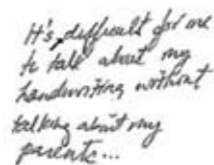 It's, difficult for me
to talk about my
handwriting without
talking about my
parents...